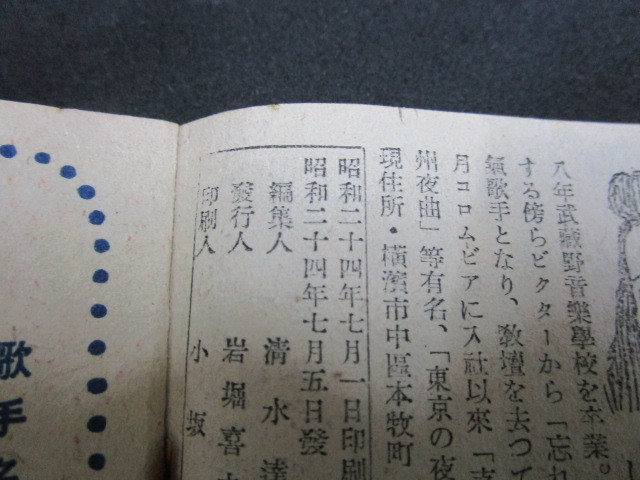 八年武蔵野音樂學校を卒業。
する傍らビクターから「忘れ
氣歌手となり、敎壇を去つて
月コロムビアに入社以來「
州夜曲」等有名、「東京の夜
現住所・橫濱市中區本牧町
昭和二十四年七月一日印刷
昭和二十四年七月五日發
編集人 清水達
發行人 岩堀喜
印刷人 小坂
歌手名